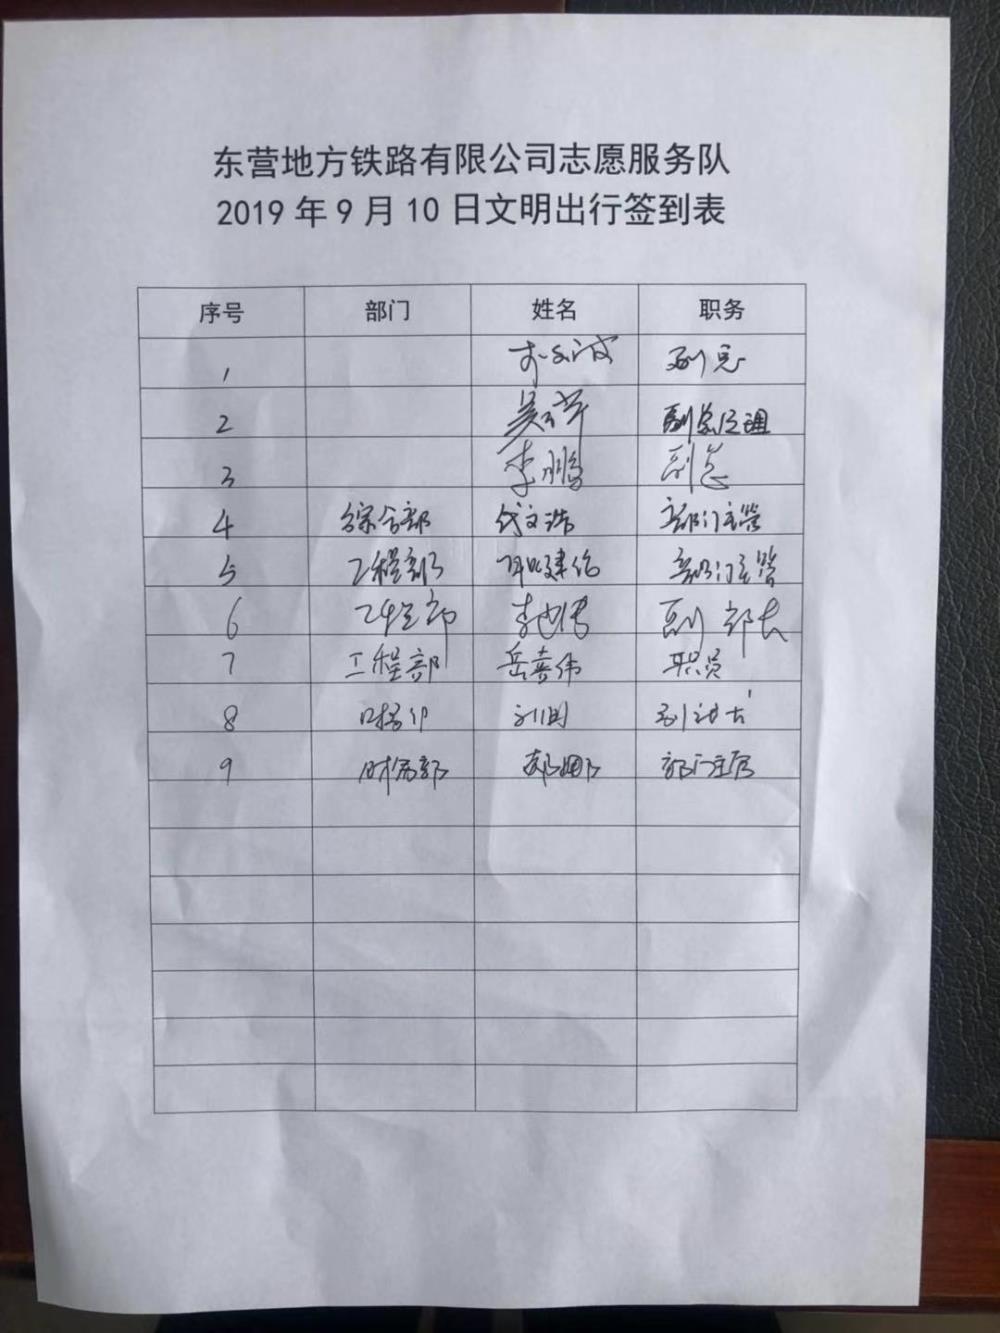 东营地方铁路有限公司志愿服务队
2019年9月10日文明出行签到表
序号 部门 姓名 职务
1 副总
2 副总经理
3 李鹏 副总
4 综合部 代文浩 部门主管
5 工程部 部门主管
6 工程部 副部长
7 工程部 岳喜伟 职员
8 刘明
9 财务部 部门主管